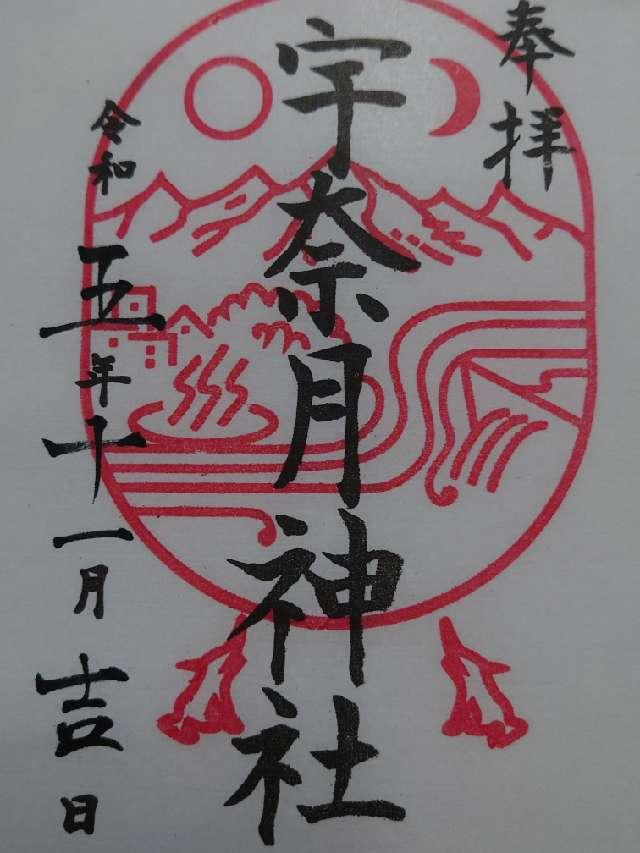 奉拝
宇奈月神社
令和五年十一月吉日